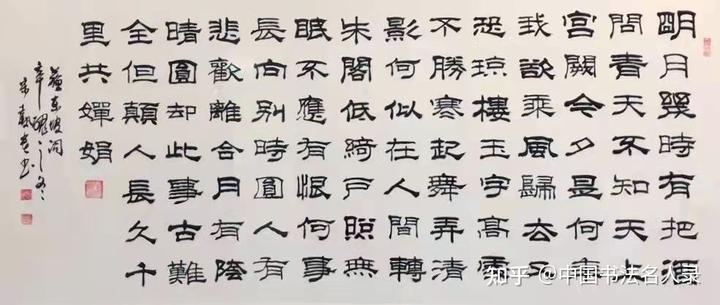 明月幾時有把酒
問青天不知天上
宮闕今夕是何年
我欲乘風歸去又
恐瓊樓玉宇高處
不勝寒起舞弄清
影何似在人間轉
朱閣低綺戶照無
眠不應有恨何事
長向別時圓人有
悲歡離合月有陰
晴圓却此事古難
全但願人長久千
里共嬋娟
蘇東坡詞
知乎 @中国书法名人录